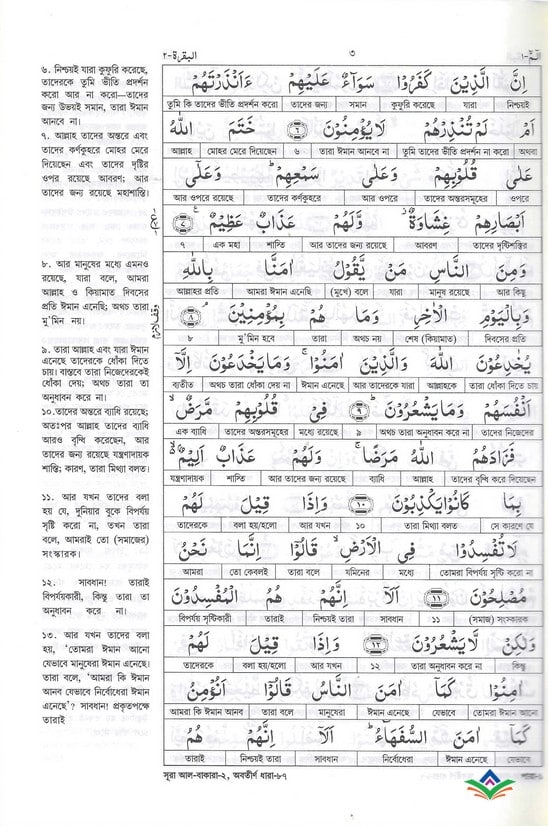 البقرة-٢
٣
الٓمّٓ-١
৬. নিশ্চয়ই যারা কুফুরি করেছে,
তাদেরকে তুমি ভীতি প্রদর্শন
করো আর না করো—তাদের
জন্য উভয়ই সমান, তারা ঈমান
আনবে না।
৭. আল্লাহ তাদের অন্তরে এবং
তাদের কর্ণকুহরে মোহর মেরে
দিয়েছেন এবং তাদের দৃষ্টির
ওপর রয়েছে আবরণ; আর
তাদের জন্য রয়েছে মহাশাস্তি।
৮. আর মানুষের মধ্যে এমনও
রয়েছে, যারা বলে, আমরা
আল্লাহ ও কিয়ামাত দিবসের
প্রতি ঈমান এনেছি; অথচ তারা
মু’মিন নয়।
৯. তারা আল্লাহ এবং যারা ঈমান
এনেছে তাদেরকে ধোঁকা দিতে
চায়। বাস্তবে তারা নিজেদেরকেই
ধোঁকা দেয়; অথচ তারা তা
অনুধাবন করে না।
১০. তাদের অন্তরে ব্যাধি রয়েছে;
অতঃপর আল্লাহ তাদের ব্যাধি
আরও বৃদ্ধি করেছেন, আর
তাদের জন্য রয়েছে যন্ত্রণাদায়ক
শাস্তি; কারণ, তারা মিথ্যা বলত।
১১. আর যখন তাদের বলা
হয় যে, দুনিয়ার বুকে বিপর্যয়
সৃষ্টি করো না, তখন তারা
বলে, আমরাই তো (সমাজের)
সংস্কারক।
১২. সাবধান! তারাই
বিপর্যয়কারী, কিন্তু তারা তা
অনুধাবন করে না।
১৩. আর যখন তাদের বলা
হয়, ‘তোমরা ঈমান আনো
যেভাবে মানুষেরা ঈমান এনেছে।
তারা বলে, ‘আমরা কি ঈমান
আনব যেভাবে নির্বোধেরা ঈমান
এনেছে’? সাবধান! প্রকৃতপক্ষে
তারাই
اِنَّ الَّذِيْنَ كَفَرُوْا سَوَآءٌ عَلَيْهِمْ ءَاَنْذَرْتَهُمْ
তুমি কি তাদের ভীতি প্রদর্শন করো তাদের জন্য সমান কুফুরি করেছে যারা নিশ্চয়ই
اَمْ لَمْ تُنْذِرْهُمْ لَا يُؤْمِنُوْنَ ٦ خَتَمَ اللّٰهُ
আল্লাহ মোহর মেরে দিয়েছেন ৬ তারা ঈমান আনবে না তুমি তাদের ভীতি প্রদর্শন না করো অথবা
عَلٰى قُلُوْبِهِمْ وَعَلٰى سَمْعِهِمْ ؕ وَعَلٰٓى
আর ওপরে রয়েছে তাদের কর্ণকুহরে আর ওপরে তাদের অন্তরসমূহের ওপরে
اَبْصَارِهِمْ غِشَاوَةٌ ؗ وَّلَهُمْ عَذَابٌ عَظِيْمٌ ٧
৭ এক মহা শাস্তি আর তাদের জন্য রয়েছে আবরণ তাদের দৃষ্টিশক্তির
وَمِنَ النَّاسِ مَنْ يَّقُوْلُ اٰمَنَّا بِاللّٰهِ
আল্লাহর প্রতি আমরা ঈমান এনেছি (মুখে) বলে যারা মানুষ রয়েছে আর কিছু
وَبِالْيَوْمِ الْاٰخِرِ وَمَا هُمْ بِمُؤْمِنِيْنَ ٨
৮ মু’মিন হবে তারা অথচ নয় শেষ (কিয়ামাত) দিবসের প্রতি
يُخٰدِعُوْنَ اللّٰهَ وَالَّذِيْنَ اٰمَنُوْا ۚ وَمَا يَخْدَعُوْنَ اِلَّآ
ব্যতীত অথচ তারা ধোঁকা দেয় না ঈমান এনেছে আর তাদেরকে যারা আল্লাহকে তারা ধোঁকা দিতে চায়
اَنْفُسَهُمْ وَمَا يَشْعُرُوْنَ ٩ فِيْ قُلُوْبِهِمْ مَّرَضٌ
এক ব্যাধি তাদের অন্তরসমূহের মধ্যে রয়েছে ৯ অথচ তারা অনুধাবন করে না তাদের নিজেদের
فَزَادَهُمُ اللّٰهُ مَرَضًا ۚ وَلَهُمْ عَذَابٌ اَلِيْمٌ
যন্ত্রণাদায়ক শাস্তি আর তাদের জন্য রয়েছে ব্যাধি আল্লাহ তাদের বৃদ্ধি করে দিয়েছেন
بِمَا كَانُوْا يَكْذِبُوْنَ ١٠ وَاِذَا قِيْلَ لَهُمْ
তাদেরকে বলা হয়/হলো আর যখন ১০ তারা মিথ্যা বলত সে কারণে যে
لَا تُفْسِدُوْا فِى الْاَرْضِ قَالُوْٓا اِنَّمَا نَحْنُ
আমরা তো কেবলই তারা বলে যমিনের মধ্যে তোমরা বিপর্যয় সৃষ্টি করো না
مُصْلِحُوْنَ ١١ اَلَآ اِنَّهُمْ هُمُ الْمُفْسِدُوْنَ
বিপর্যয় সৃষ্টিকারী তারাই নিশ্চয় তারা সাবধান ১১ (সমাজ) সংস্কারক
وَلٰكِنْ لَّا يَشْعُرُوْنَ ١٢ وَاِذَا قِيْلَ لَهُمْ
তাদেরকে বলা হয়/হলো আর যখন ১২ তারা অনুধাবন করে না কিন্তু
اٰمِنُوْا كَمَآ اٰمَنَ النَّاسُ قَالُوْٓا اَنُؤْمِنُ
আমরা কি ঈমান আনব তারা বলে মানুষেরা ঈমান এনেছে যেভাবে তোমরা ঈমান আনো
كَمَآ اٰمَنَ السُّفَهَآءُ ؕ اَلَآ اِنَّهُمْ هُمُ
তারাই নিশ্চয়ই তারা সাবধান নির্বোধেরা ঈমান এনেছে যেভাবে
সূরা আল-বাকারা-২, অবতীর্ণ ধারা-৮৭
পারা-১